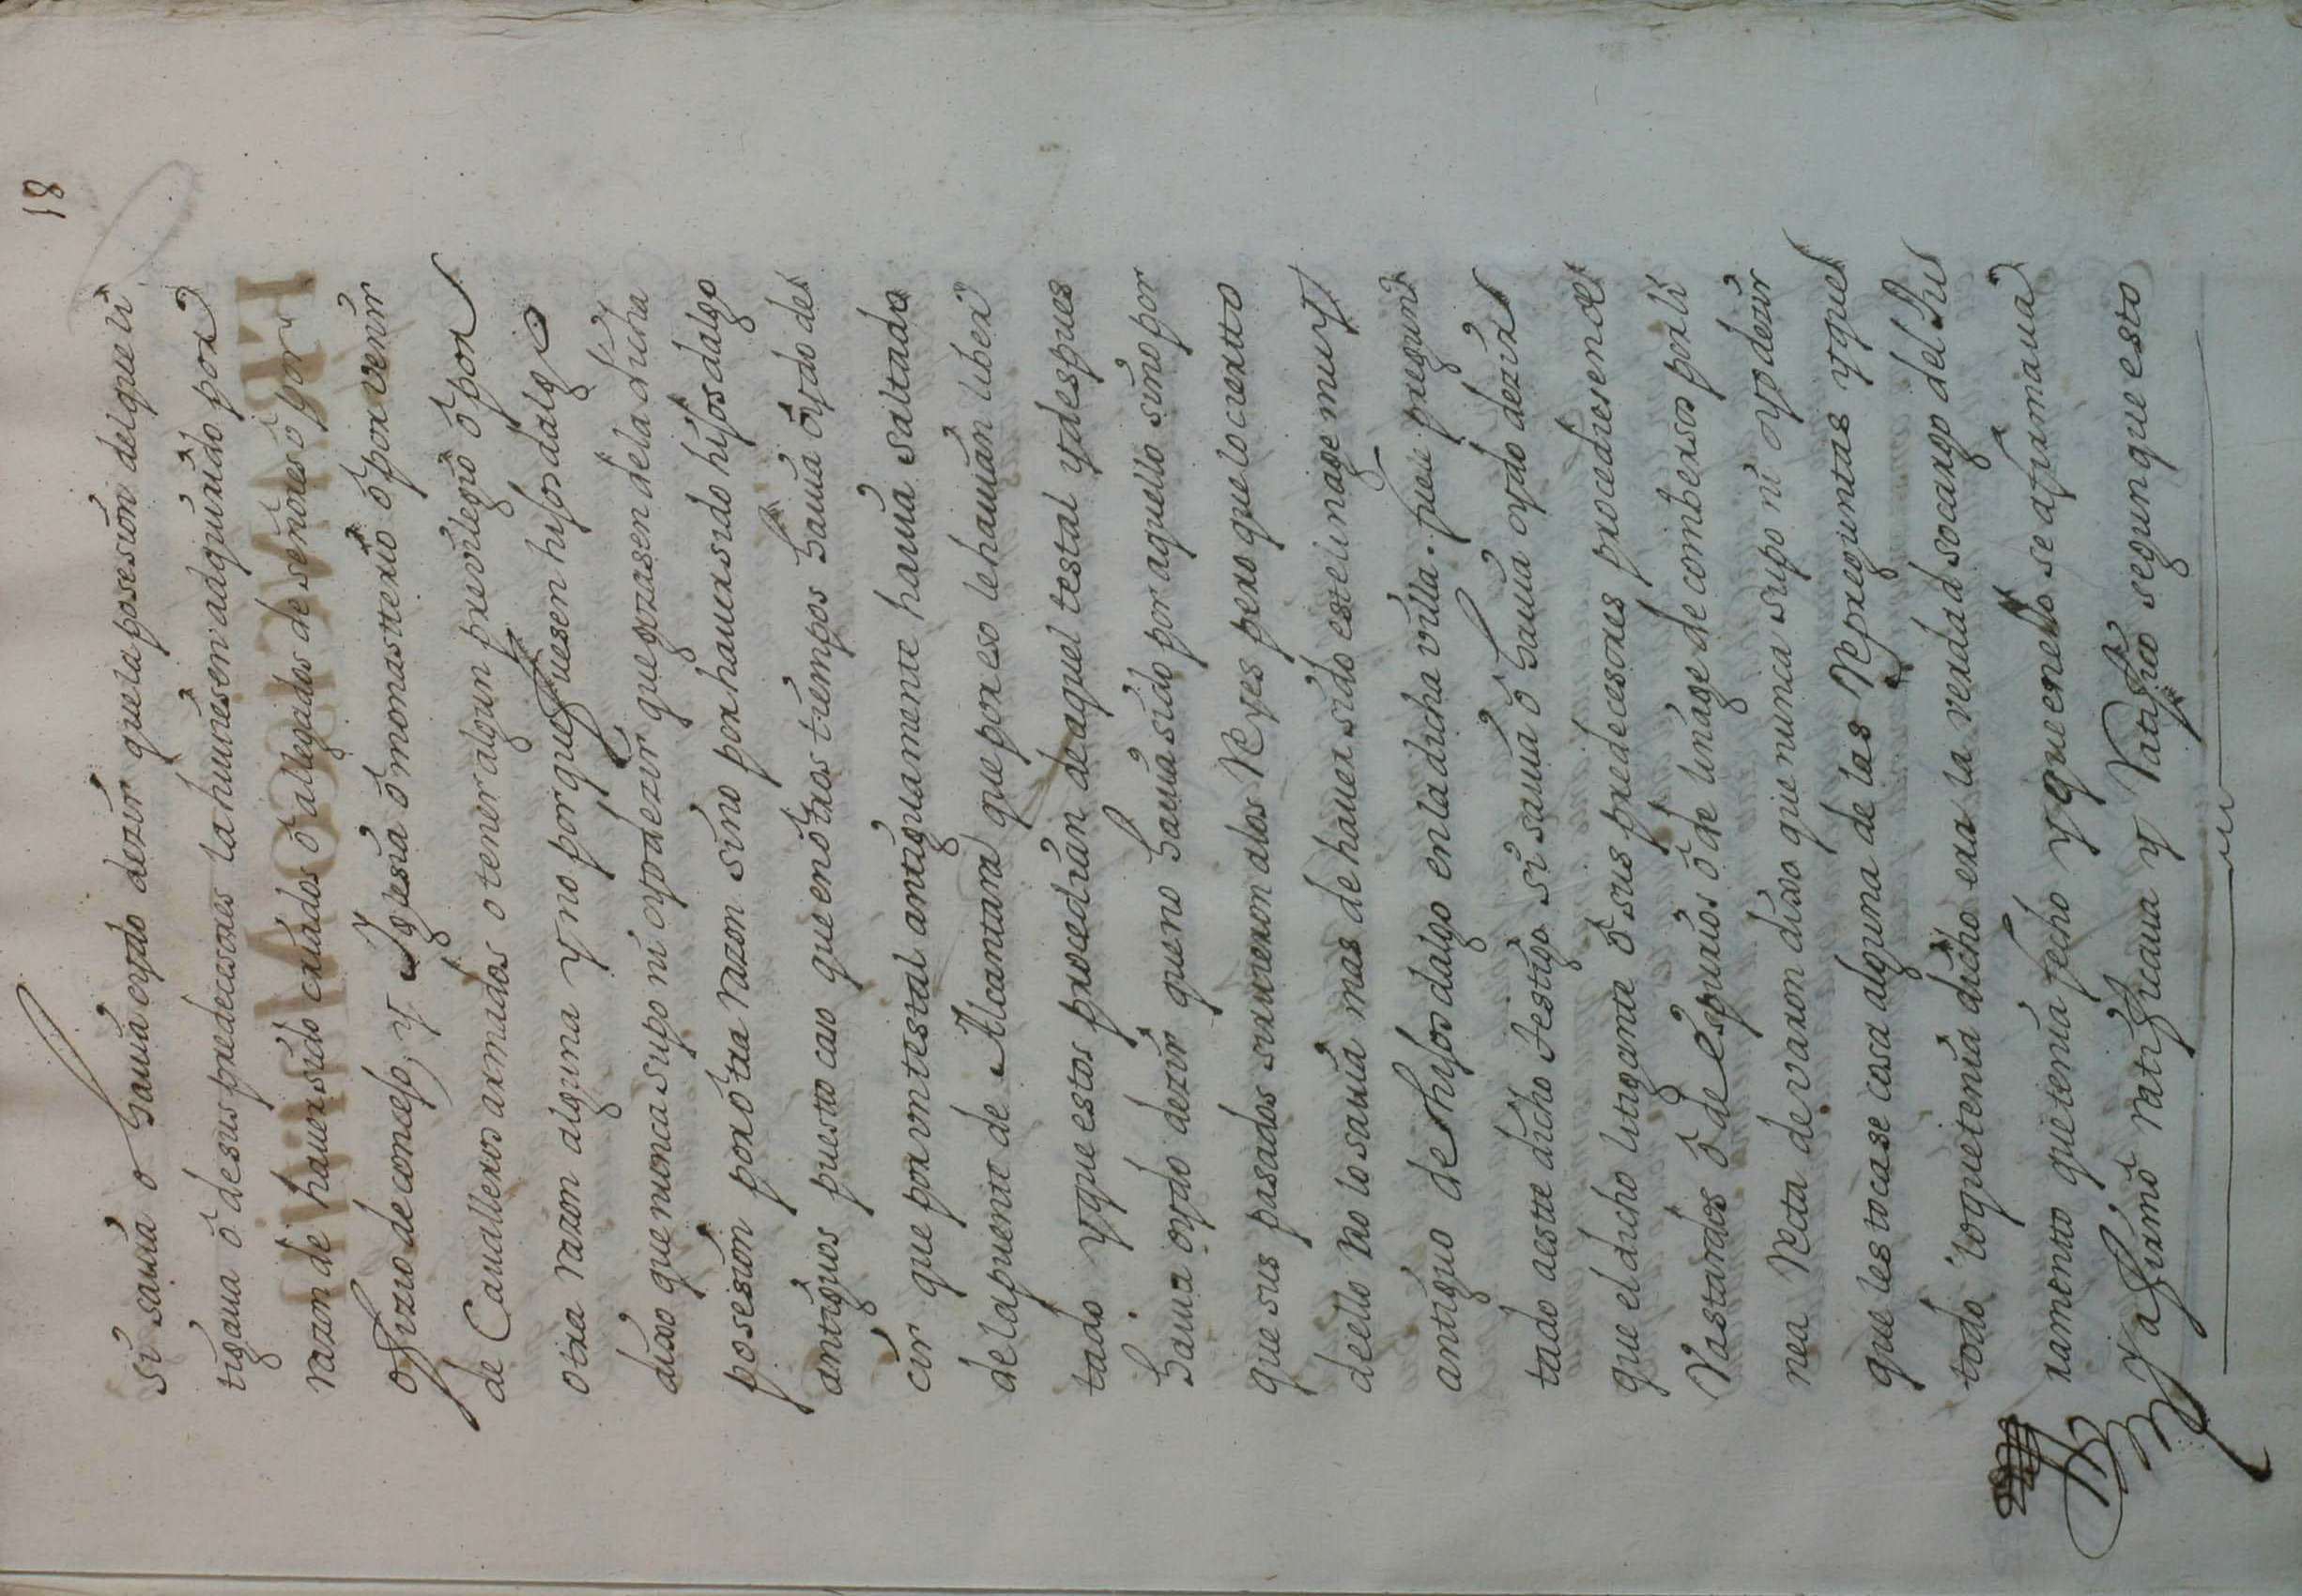 18
si sauia o hauia oydo dezir que la posesion del que li
tigaua ò de sus predecesores la huuiesen adquirido por
razon de hauer sido criados ò allegados de señores ò por
ofizio de concejo, y Iglesia ò monasterio ò por venir
de Caualleros armados o tener algun preuilegio ò por
otra razon alguna y no porque fuesen hijos dalgo
dixo que nunca supo ni oyo dezir que gozasen de la dicha
posesion por òtra razon sino por hauer sido hijos dalgo
antiguos puesto caso que en òtros tiempos hauia òydo de
cir que por vn testal antiguamente hauia saltado
de la puente de Alcantara que por eso le hauian liber
tado y que estos procedian de aquel testal y despues
haura oydo dezir que no hauia sido por aquello sino por
que sus pasados siruieron a los Reyes pero que lo cierto
de ello no lo sauia mas de hauer sido este linage muy
antiguo de hijos dalgo en la dicha villa. fuele pregun
tado a este dicho testigo si sauia ò hauia oydo dezir
que el dicho litigante ò sus predecesores procediesen de
Vastardos ò de espurios ò de linage de comberssos por li
nea Recta de varon dixo que nunca supo ni oyo decir
que les tocase cosa alguna de las Repreguntas y que
todo lo que tenia dicho era la verdad so cargo del Ju
ramento que tenia fecho y que en ello se afirmaua
y afirmò ratificaua y Ratifico segun que esto